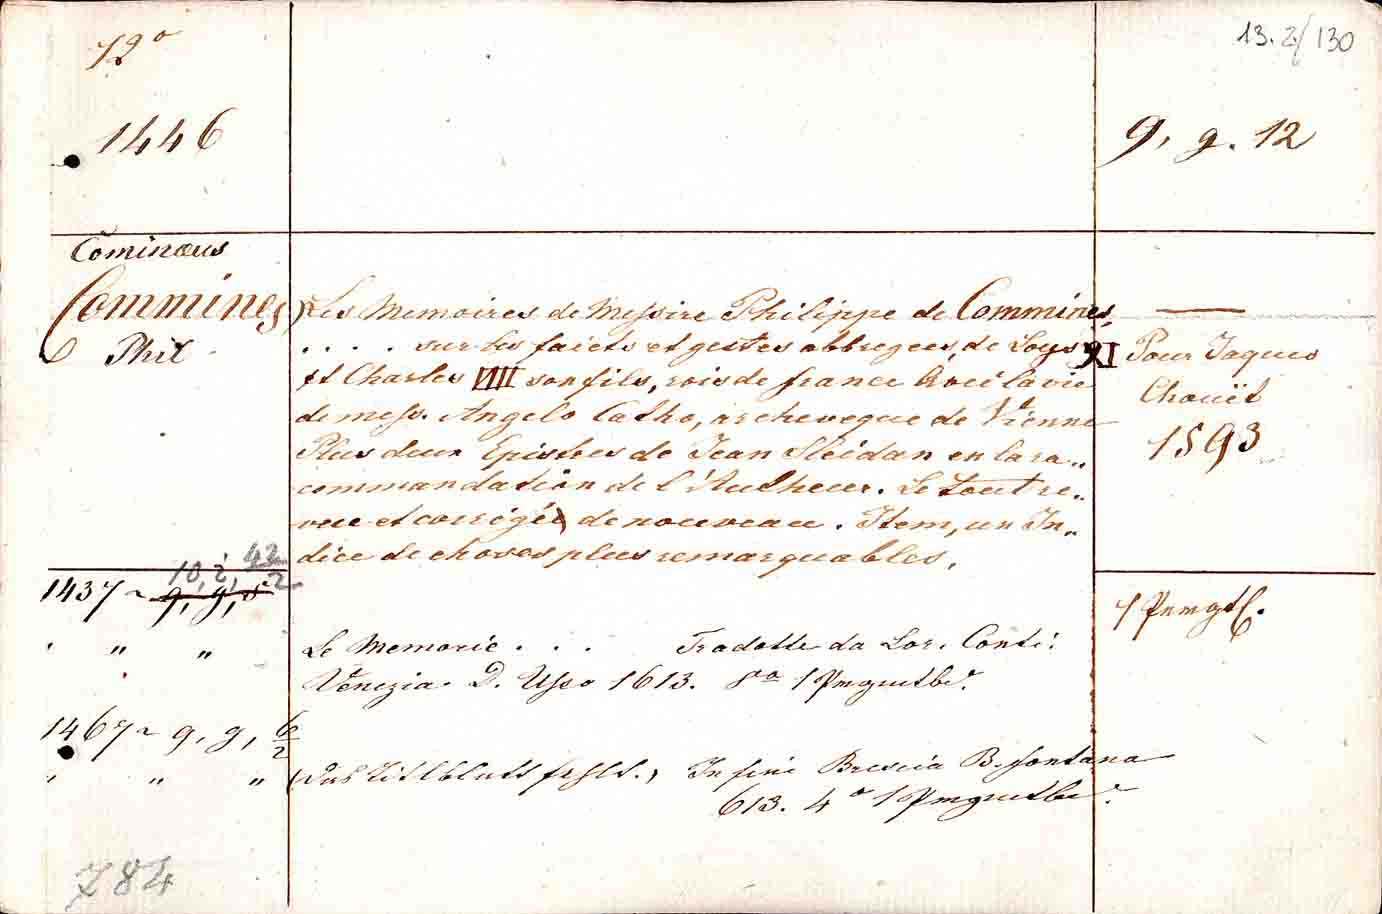 12°
13.2/130
1446
9, g. 12
Cominæus
Commines
Phil
Les Memoires de Messire Philippe de Commines,
. . . . sur les faicts et gestes abbregees, de Loys XI
et Charles VIII son fils, rois de france Avec la vie
de mess. Angelo Catho, archeveque de Vienne
Plus deux Epistres de Jean Sleidan en la ra„
commandation de l'Autheur. Le tout re„
veu et corrigé de nouveau. Item, un In„
dice de choses plus remarquables.
Pour Jaques
Chouët
1593
10, 2, 42
2
1437 ~ 9, g, 8
1 Prmgtb.
" " "
Le Memorie . . . Tradotte da Lor. Conti.
Venezia. D. Usso 1613. 8° 1 Pmgmtbd.
1467 ~ 9, g, 6/2
" " " (Das Titlblatt fehlt.) In fine Brescia B. fontana
613. 4° 1 Pmgmtbd.
784